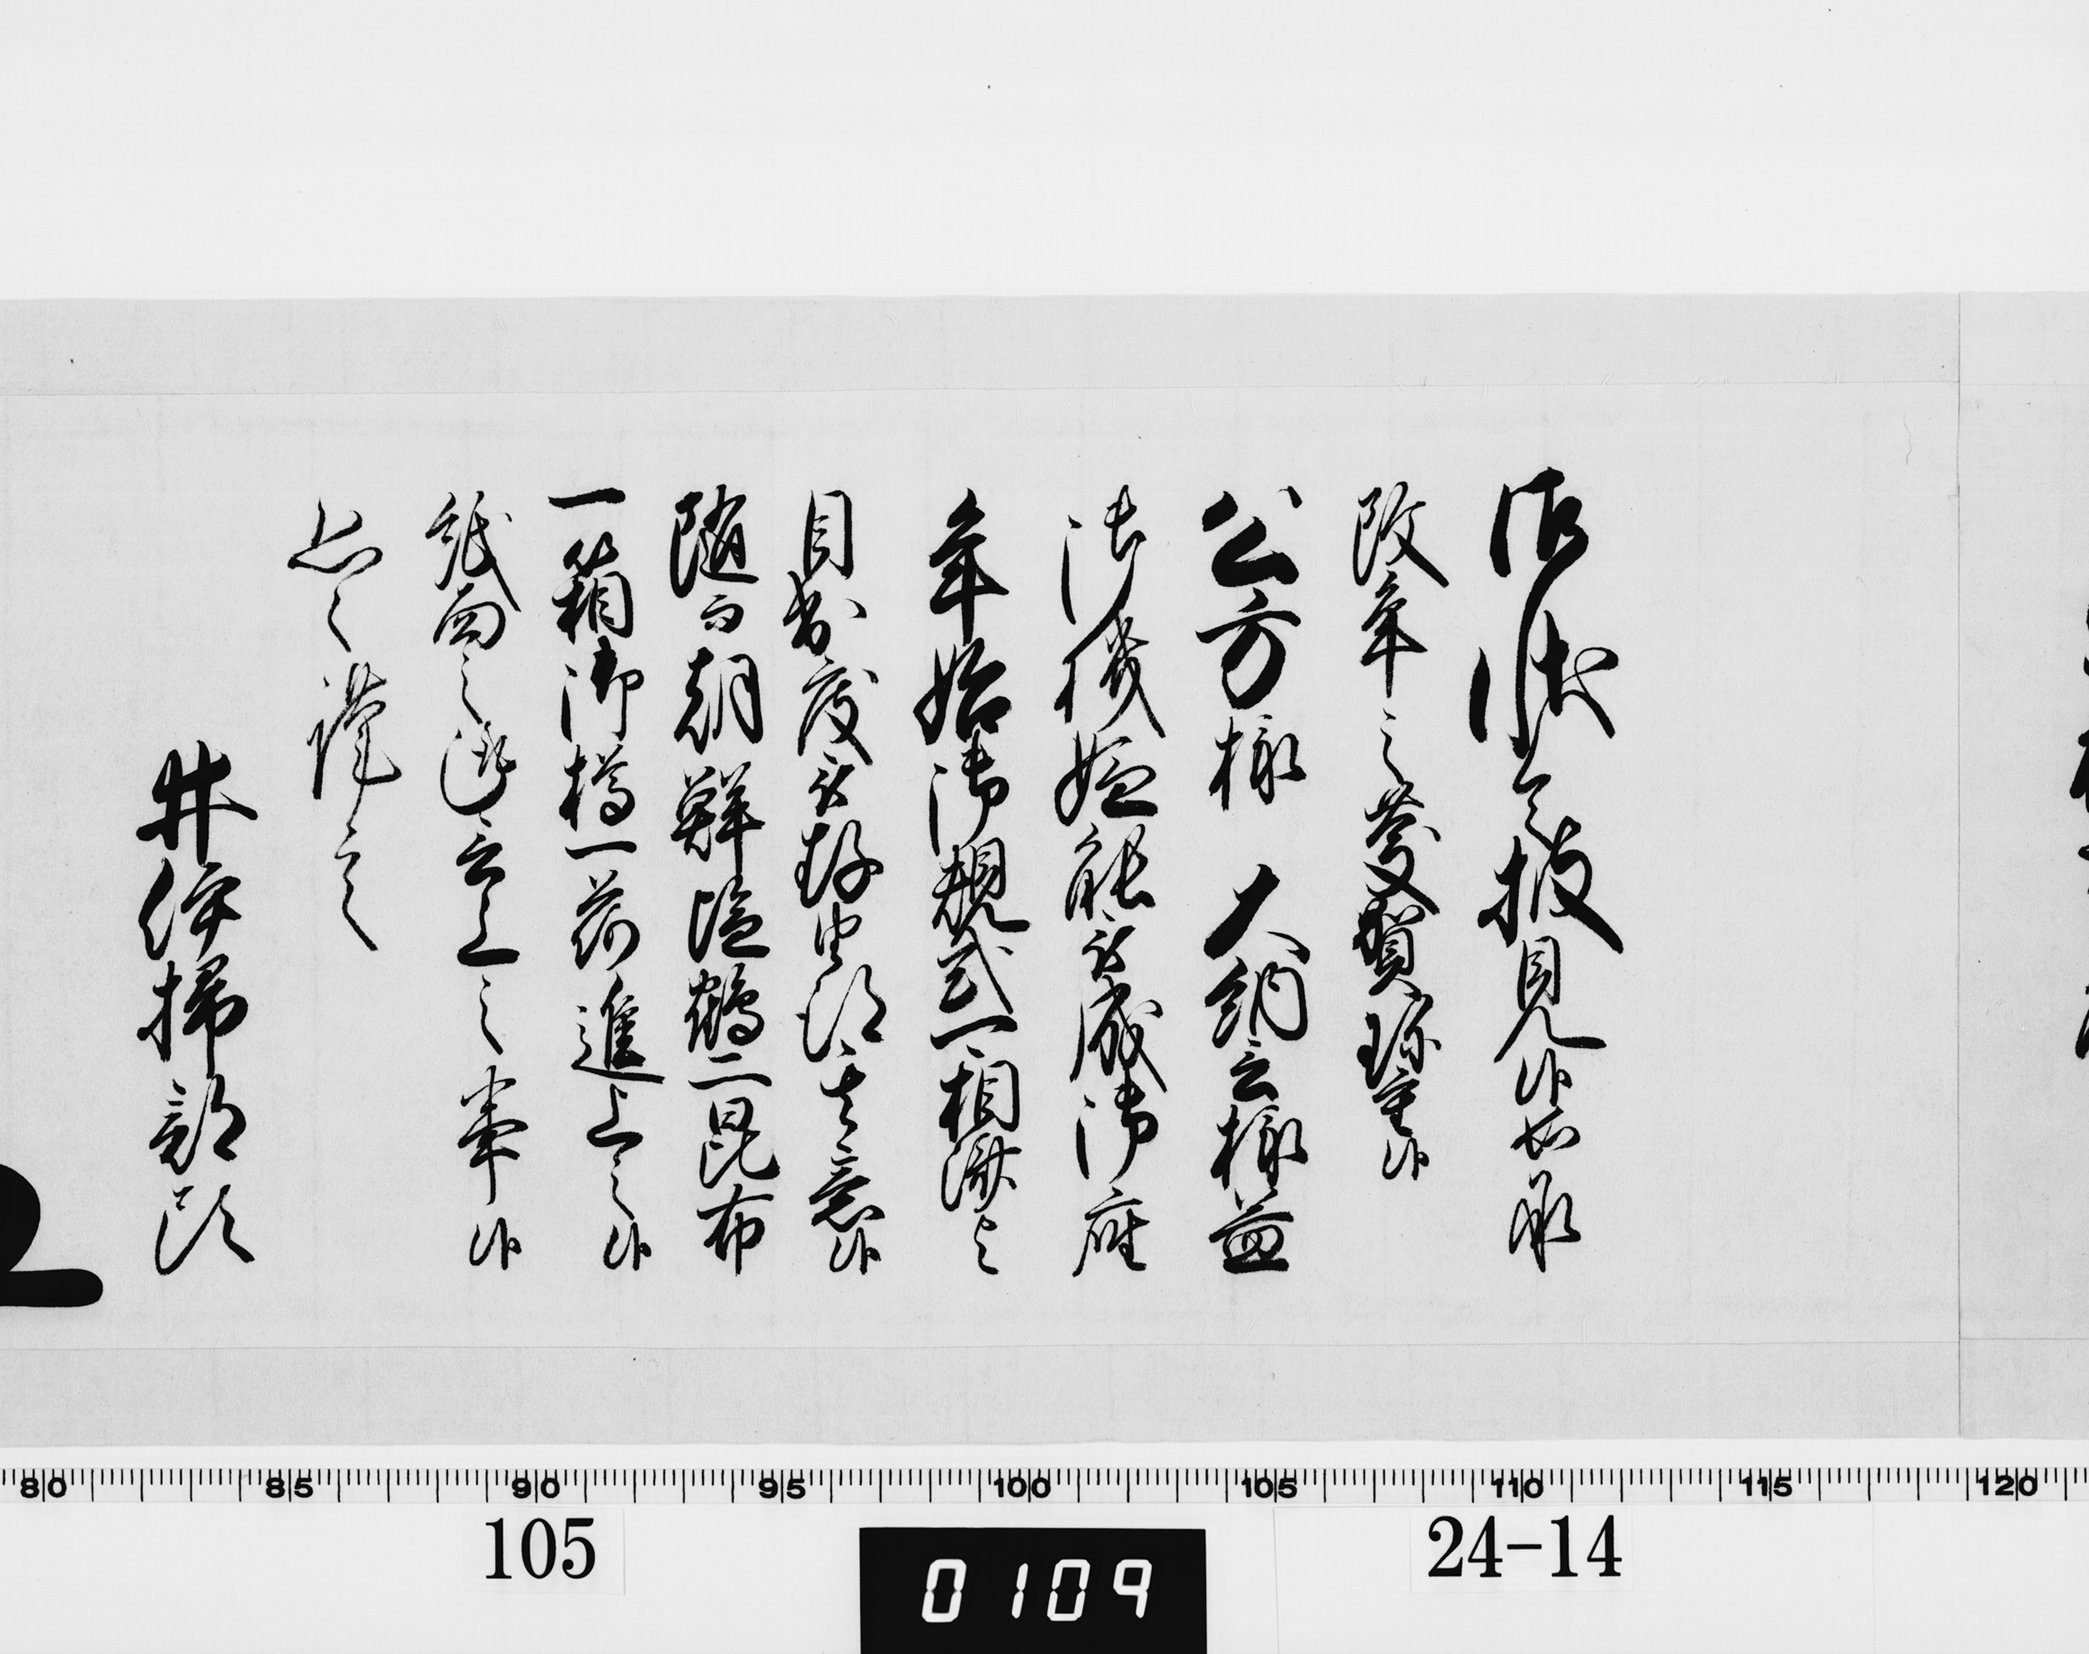 御状令披見候如承
改年之慶賀珍重候
公方様 大納言様益
御機嫌能被成御座
年始御規式相済之
目出度被存由得其意候
随而朝鮮塩鶴二昆布
一箱御樽一荷進上之候
紙面之通言上之事候
恐々謹言
井伊掃部頭
80 85 90 95 100 105 110 115 120
105
0109
24-14